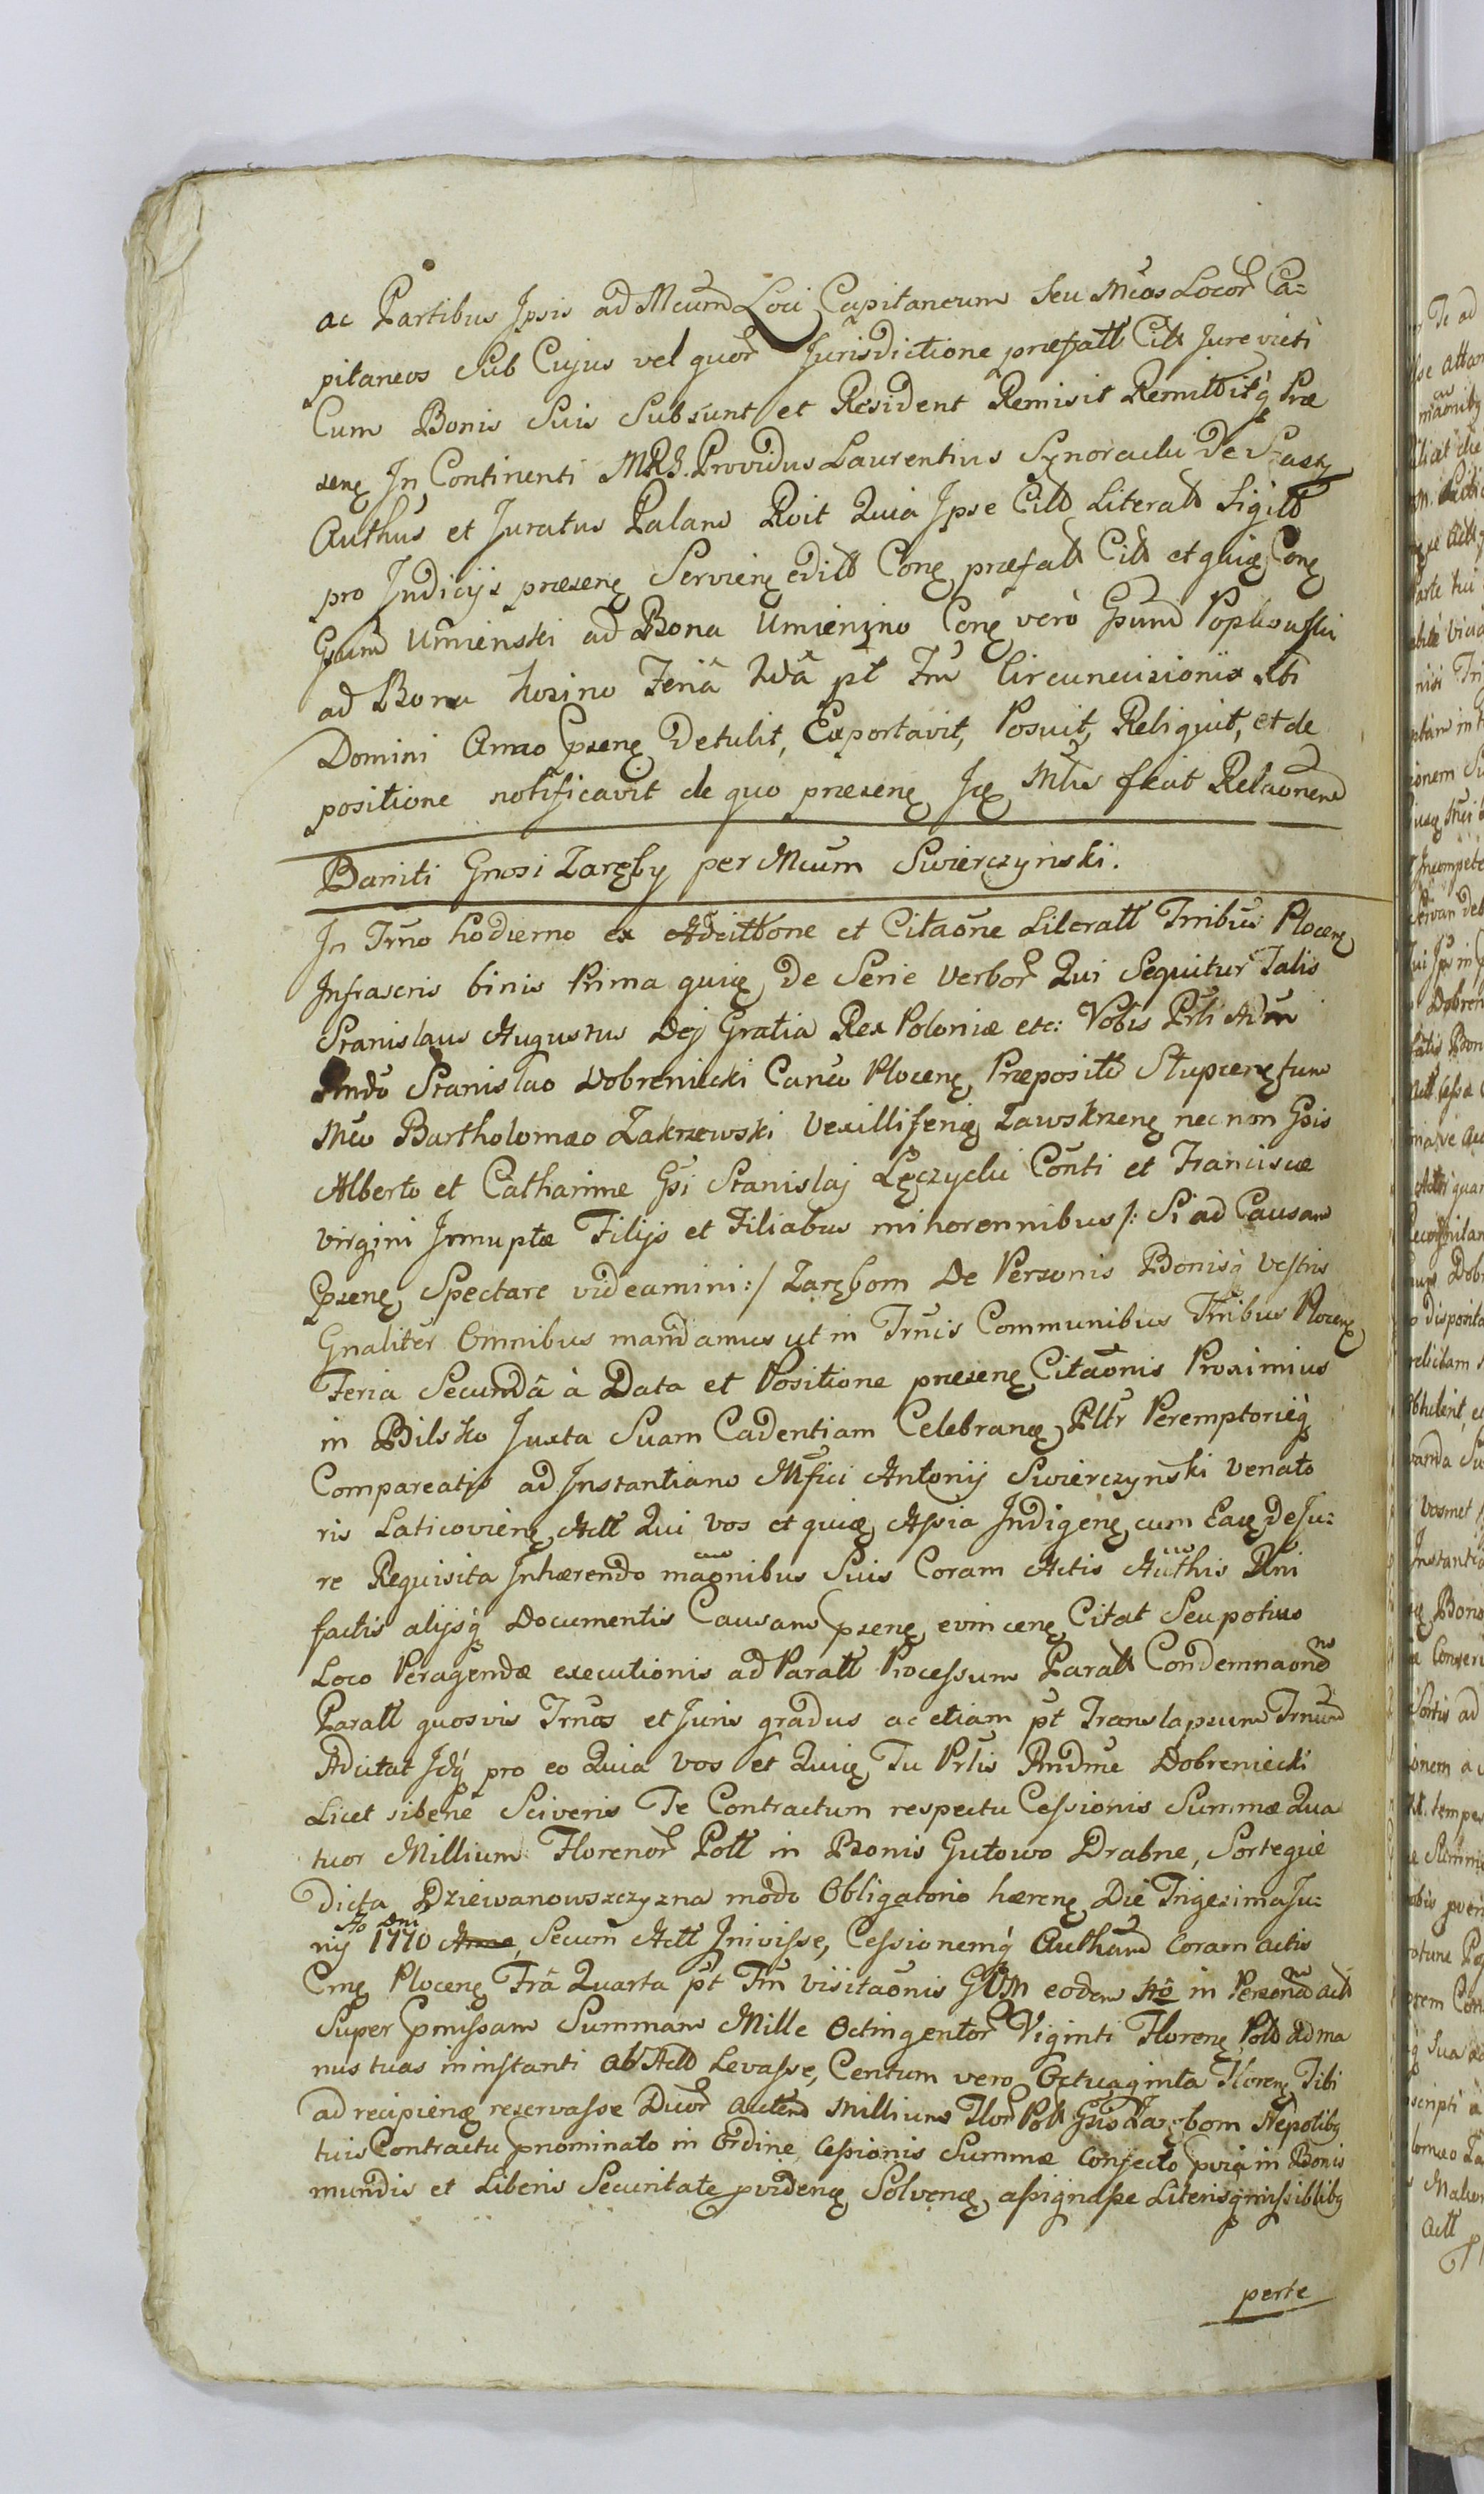 ac Partibus Ipsis ad Mcum Loci Capitaneum Seu Mcos Locor Ca=
pitaneos Sub Cujus vel quor Jurisdictione præfatt Citt Jure victi
Cum Bonis Suis Subsunt et Resident Remisit Remittitq Præ
senę In Continenti MRJ. Providus Laurentius Synoracki De
Authūs et Juratus Palam Rvit Quia Ipse Citt Literatt Sigitt
pro Judicijs præsenę Servienę editt Conę præfatt Citt et quię Conę
Gsum Umienski ad Bona Umienino Conę verò Gsum Poplkowski
ad Bona Kosino Feriâ 2dâ pt Fm Circumcisionis Xti
Domini Anno Psenę Detulit, Exportavit, Posuit, Reliquit, et de
positione notificavit de quo præsenę Ję Mtus fecit Relaonem
Baniti Gnosi Zaręby per Mcum Swierczynski.
In Trno hodierno ex Adcittone et Citaōne Literatt Trnibus Plocenę
Infrascris binis Prima quię De Serie Verbor Qui Sequitur Talis
Stanislaus Augustus Dej Gratia Rex Poloniæ etc: Vobis Prli Adm
Rndo Stanislao Dobreniecki Canco Plocenę Præposito Stupcenę tum
Mco Bartholomæo Zakrzewski Vexilliferię Zawskrzenę necnon Gsis
Alberto et Catharinæ Gsi Stanislaj Lęczycki Conti et Franciscæ
Virgini Innuptæ Filijs et Filiabus minorennibus /: Si ad Causam
Psenę Spectare videamini :/ Zarębom De Personis Bonisq Vestris
Gnaliter Omnibus mandamus ut in Trnis Communibus Trnibus Plocenę
Feria Secundâ à Data et Positione præsenę Citaōnis Proximius
in Bilsko Juxta Suam Cadentiam Celebranę Pltr Peremptorięq
Compareatis ad Instantiam Mfici Antonij Swierczynski Venato
ris Laticovienę Actt Qui vos et quię Assia Indigenę cum Eaę De Ju=
re Requisita Inhærendo maōnibus Suis Coram Actis Authis Dni
factis alijsq Documentis Causam Psenę evincenę Citat Seu potius
Loco Peragendæ executionis ad Paratt Processum Paratt Condemnaonē
Paratt quosvis Trnos et Juris gradus ac etiam pt Translapsum Trnum
Adcitat Idq pro eo Quia vos et Quię Tu Prlis Rndme Dobreniecki
Licet sibene Sciveris Te Contractum respectu Cessionis Summæ Qua
tuor Millium Florenor Poll in Bonis Gutowo Drabne, Sorteque
Dicta Dziewanowszczyzna modo Obligatorio hærenę Die Trigesima Ju=
nij Ao Dni 1770 Anno Secum Actt Inivisse, Cessionemq Autham Coram actis
Cmę Plocenę Frâ Quarta pt Fm visitaōnis BVM eodem Aō in Personā actt
Super Pmissam Summam Mille Octingentor Viginti Florenę Poll Ad ma
nus tuas in instanti ab Actt Levasse, Centum vero Octuaginta Florenę Tibi
ad recipienę reservasse Duor autem Millium Flor Poll Gsis Zarębom Nepotibq
tuis Contractu Pnominato in Ordine Cessionis Summæ Confecto Pviā in Bonis
mundis et Liberis Securitate Pvidenę Solvenę assignasse Literisq missilibq
perte